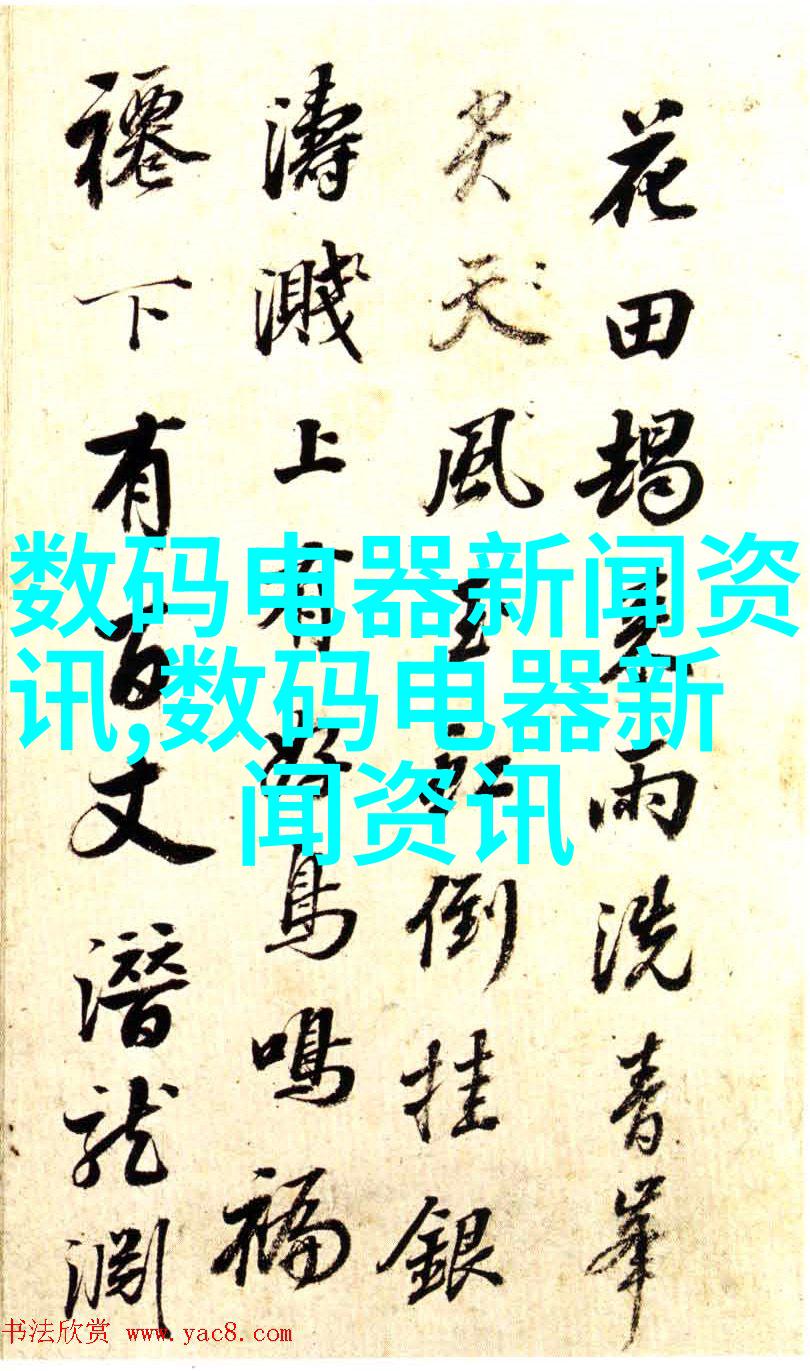 花田朅来雨洗青峯
尖天風玉虹倒挂銀
濤濺上有鳥鳴福
下有百丈潛龍淵
数码电器新闻资
讯,数码电器新
闻资讯
书法欣赏 www.yac8.com